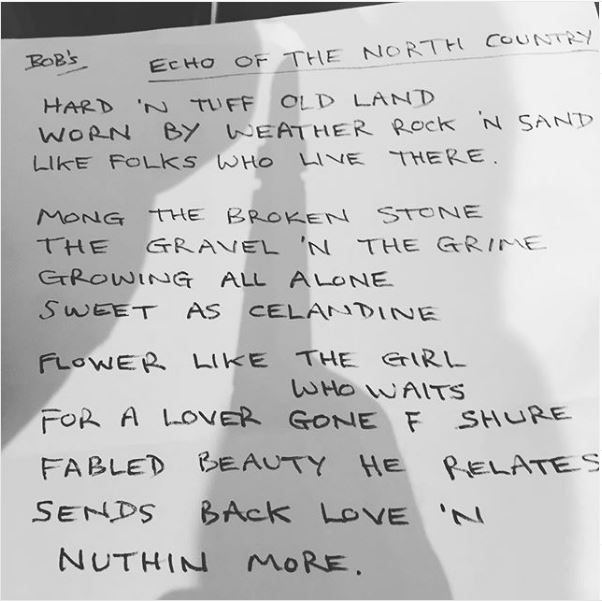 BOB'S ECHO OF THE NORTH COUNTRY
HARD 'N TUFF OLD LAND
WORN BY WEATHER ROCK 'N SAND
LIKE FOLKS WHO LIVE THERE.
MONG THE BROKEN STONE
THE GRAVEL 'N THE GRIME
GROWING ALL ALONE
SWEET AS CELANDINE
FLOWER LIKE THE GIRL
WHO WAITS
FOR A LOVER GONE F SHURE
FABLED BEAUTY HE RELATES
SENDS BACK LOVE 'N
NUTHIN MORE.